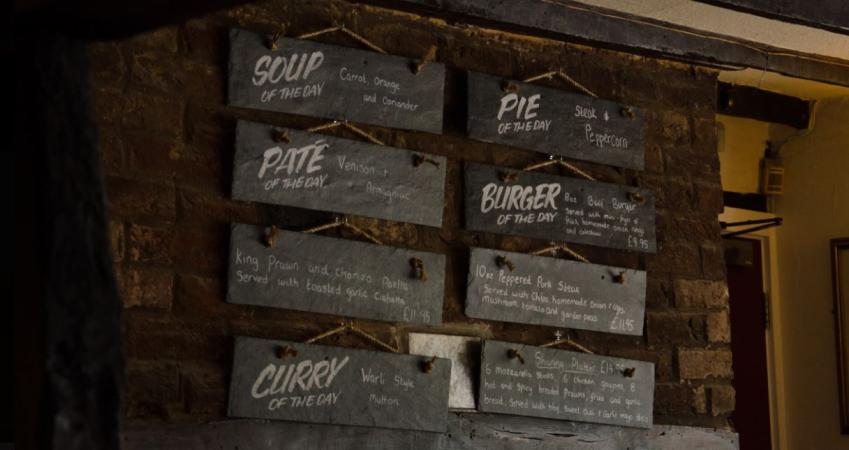 SOUP
OF THE DAY
Carrot, Orange
and Coriander
PATÉ
OF THE DAY
Venison +
Armagnac
King Prawn and Chorizo Paella
Served with toasted garlic Ciabatta
£11.95
CURRY
OF THE DAY
Warli Style
Mutton
PIE
OF THE DAY
Steak &
Peppercorn
BURGER
OF THE DAY
8oz Beef Burger
Served with
fries, homemade onion rings
and coleslaw
£9.95
10oz Peppered Pork Steak
Served with Chips, homemade onion rings,
mushroom, tomato and garden peas.
£11.95
Sharing Platter
6 mozzarella sticks, 6 chicken goujons, 8
hot and spicy breaded prawns, fries and garlic
bread, Served with bbq, sweet chilli + Garlic mayo dips